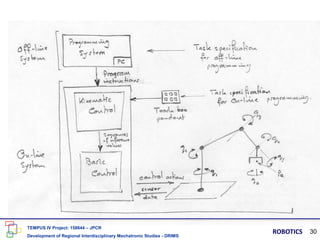 Off-line
System
Programming
System
PC
Task specification
for off-line
programming
Program
instructions
Kinematic
Control
Teach box
pendant
Task specification
for On-line programming.
Sequences
of reference
values
On-line
System
Basic
Control
control actions
sensor
data
TEMPUS IV Project: 158644 – JPCR
Development of Regional Interdisciplinary Mechatronic Studies - DRIMS
ROBOTICS 30